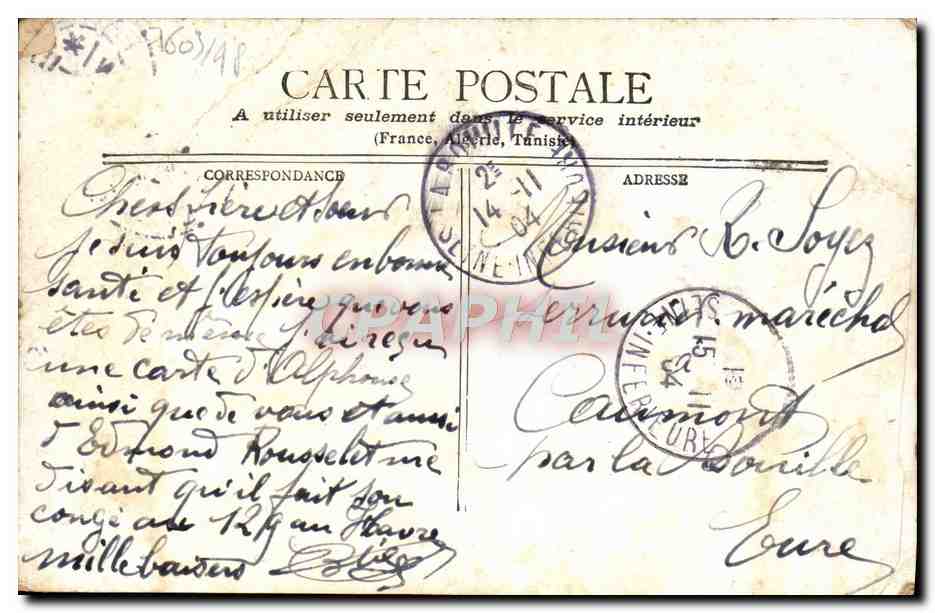 7603/98
CARTE POSTALE
A utiliser seulement dans le service intérieur
(France, Algérie, Tunisie)
CORRESPONDANCE
ADRESSE
Chers frère et soeur
je suis toujours en bonne
santé et j'espère que vous
êtes de même j'ai reçu
une carte d'Alphonse
ainsi que de vous et aussi
d'Edmond Rousselet me
disant qu'il fait son
congé au 129 au Havre
mille baisers
Monsieur R. Soyez
serrurier. maréchal
Caumont
par la Bouille
Eure
LA BOUILLE
SEINE-INFRE
14 -11
04
SEINE-INFERIEURE
15 -11
04
CPAPHIL